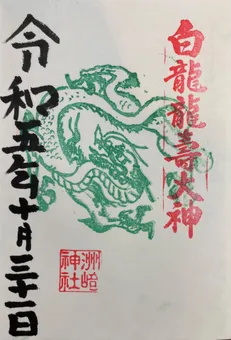 白龍龍壽大神
令和五年十月三十一日
洲崎
神社